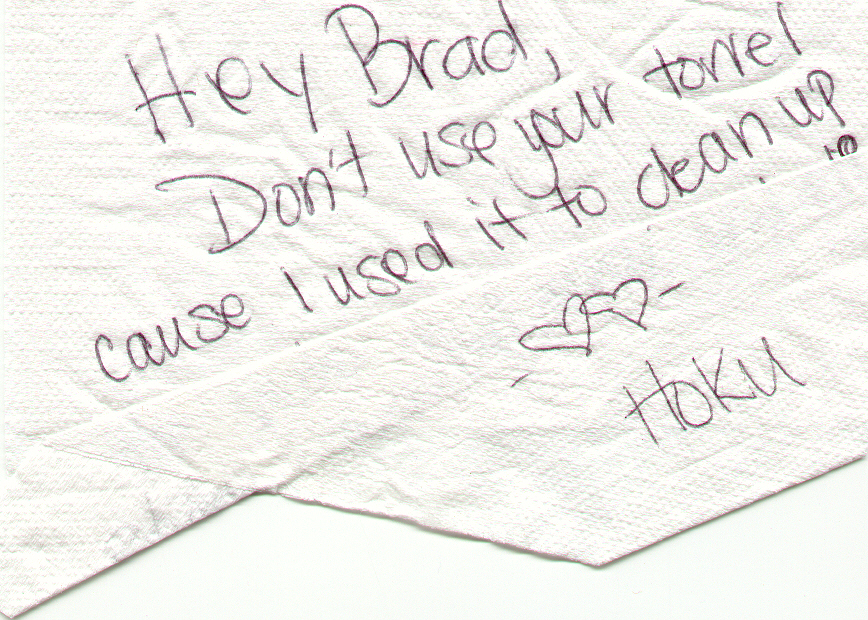 Hey Brad,
Don't use your towel
cause I used it to clean up
HOKU